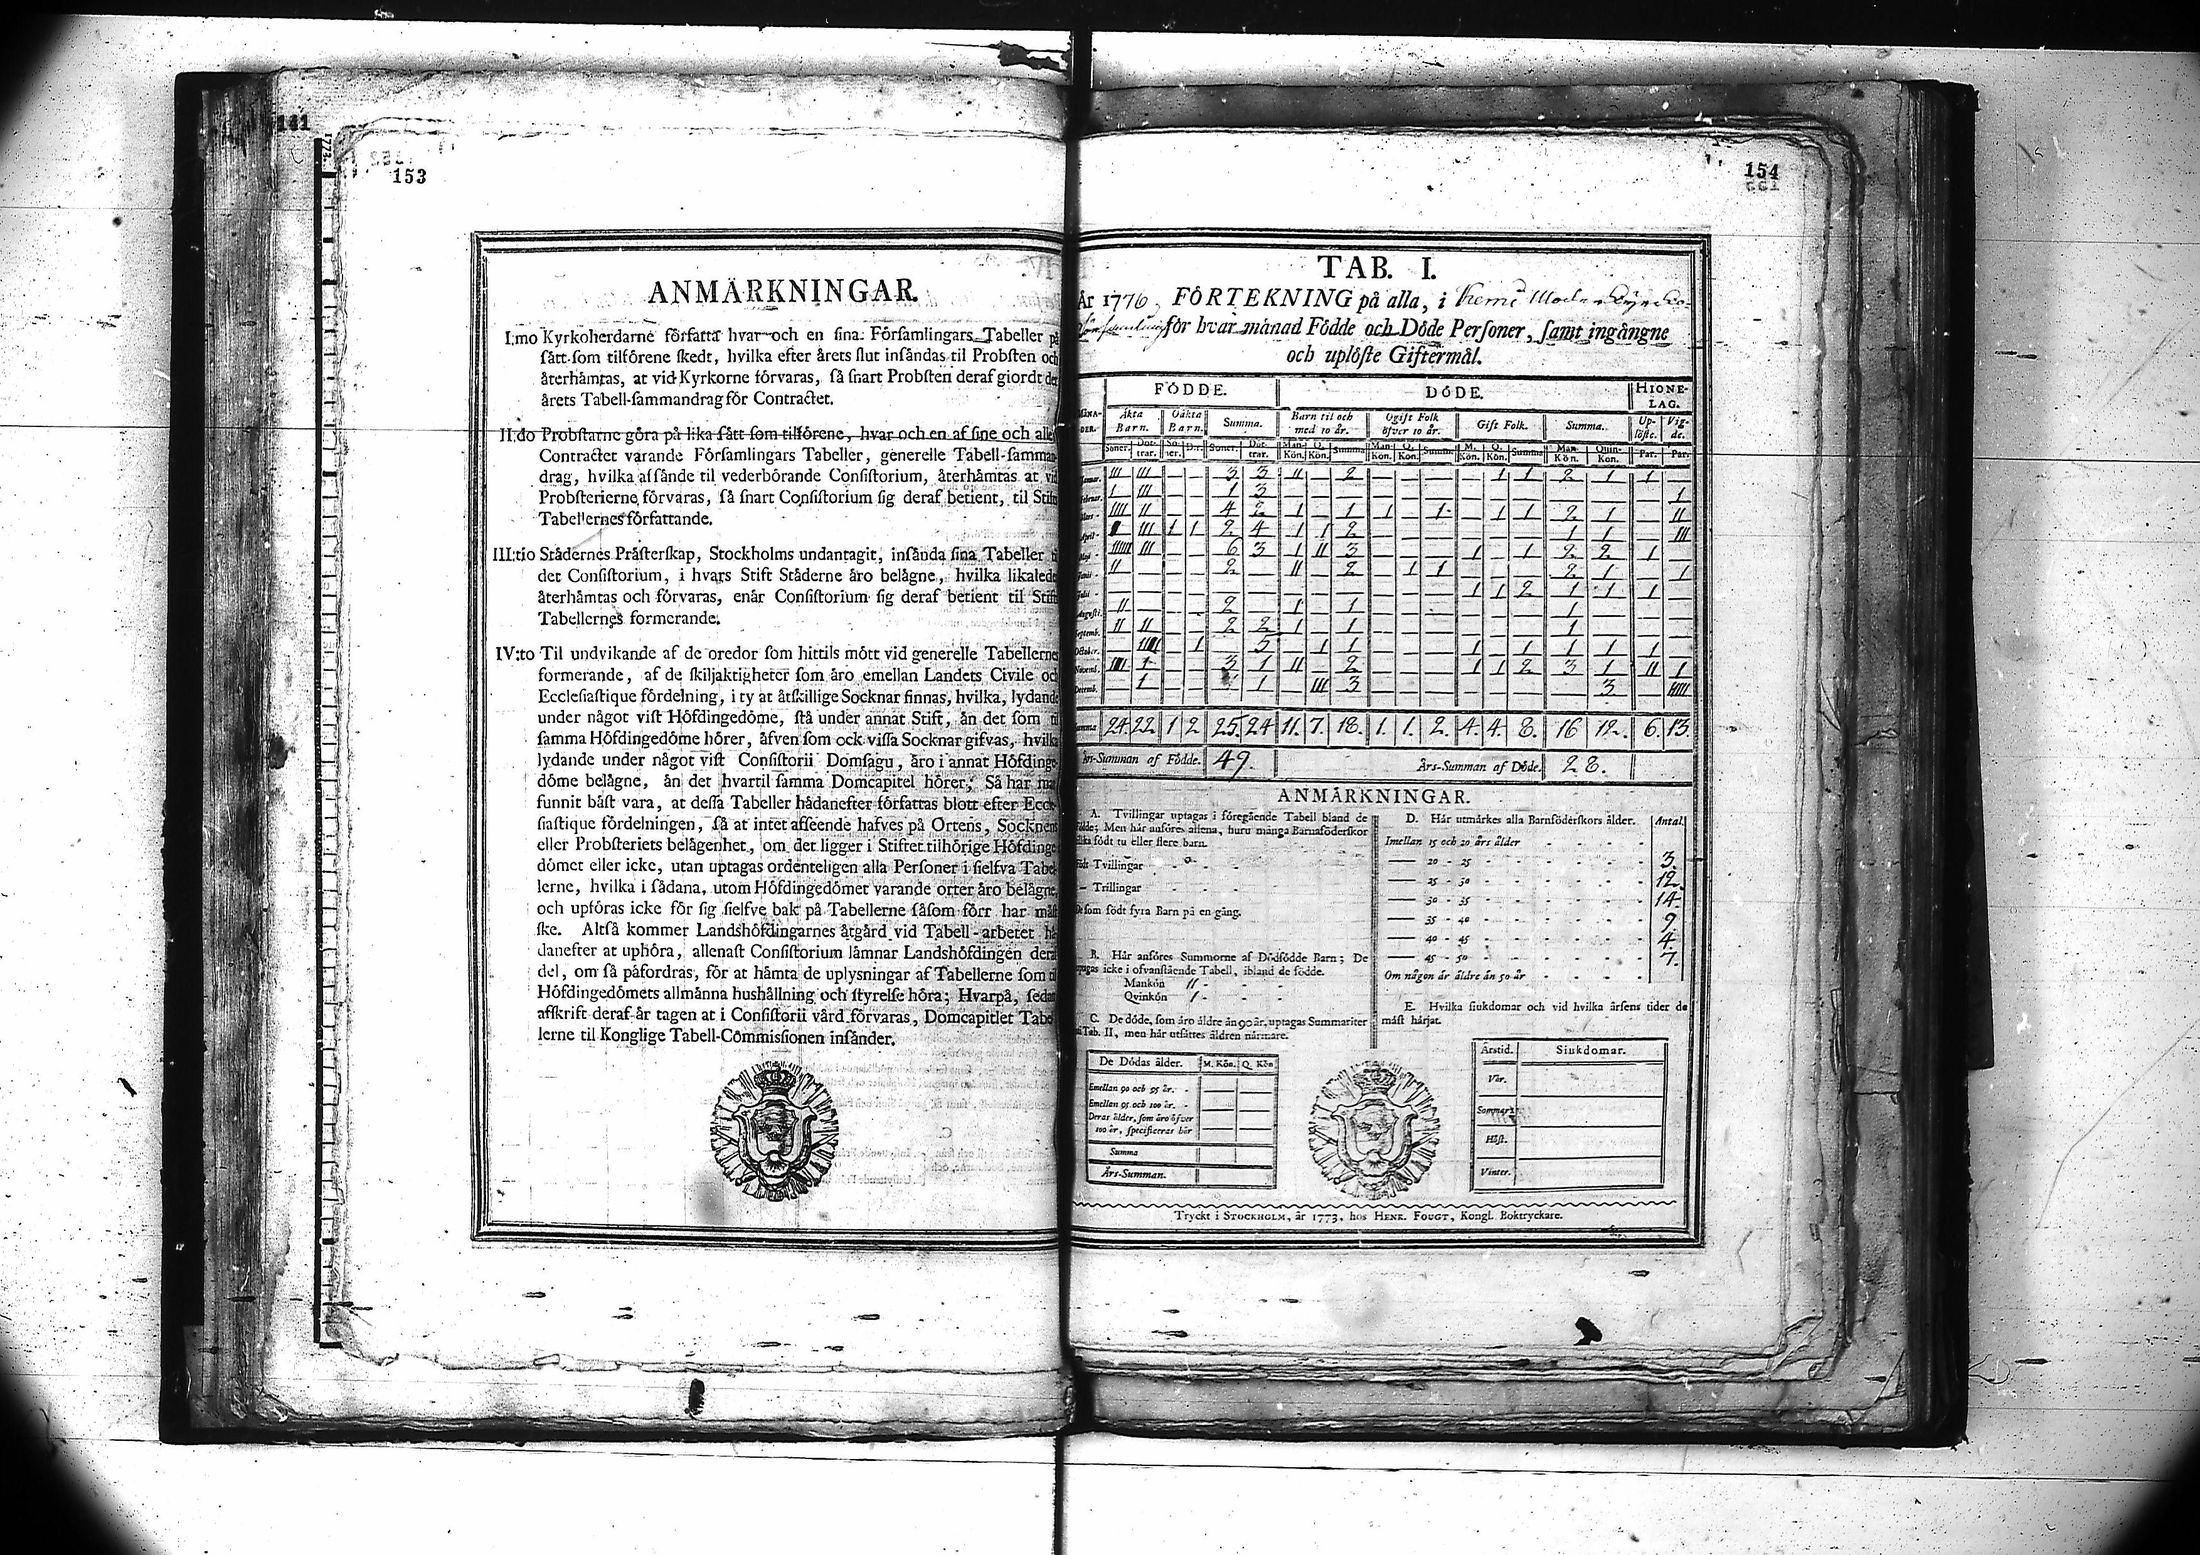 141
153
ANMÄRKNINGAR.
I:mo Kyrkoherdarne författa hvar och en sina Församlingars Tabeller på
sätt som tilförene skedt, hvilka efter årets slut insändas til Probsten och
återhämtas, at vid Kyrkorne förvaras, så snart Probsten deraf giordt det
årets Tabell-sammandrag för Contractet.
II:do Probstarne göra på lika sätt som tilförene, hvar och en af sine och alles
Contractet varande Församlingars Tabeller, generelle Tabell-samman-
drag, hvilka afsände til vederbörande Consistorium, återhämtas at vid
Probsterierne förvaras, så snart Consistorium sig deraf betient, til Stifts
Tabellernes författande.
III:tio Städernes Prästerskap, Stockholms undantagit, insända sina Tabeller til
det Consistorium, i hvars Stift Städerne äro belägne, hvilka likaledes
återhämtas och förvaras, enär Consistorium sig deraf betient til Stifts
Tabellernes formerande.
IV:to Til undvikande af de oredor som hittils mött vid generelle Tabellernes
formerande, af de skiljaktigheter som äro emellan Landets Civile och
Ecclesiastique fördelning, i ty at åtskillige Socknar finnas, hvilka, lydande
under något visst Höfdingedöme, stå under annat Stift, än det som til
samma Höfdingedöme hörer, äfven som ock vissa Socknar gifvas, hvilka
lydande under något visst Consistorii Domsagu, äro i annat Höfdinge-
döme belägne, än det hvartil samma Domcapitel hörer; Så har man
funnit bäst vara, at dessa Tabeller hädanefter författas blott efter Eccle-
siastique fördelningen, så at intet afseende hafves på Ortens, Socknens
eller Probsteriets belägenhet, om det ligger i Stiftet tilhörige Höfdinge-
dömet eller icke, utan uptagas ordenteligen alla Personer i sielfva Tabel-
lerne, hvilka i sådana, utom Höfdingedömet varande orter äro belägne,
och upföras icke för sig sielfve bak på Tabellerne såsom förr har måst
ske. Altså kommer Landshöfdingarnes åtgärd vid Tabell-arbetet hä-
danefter at uphöra, allenast Consistorium lämnar Landshöfdingen deraf
del, om så påfordras, för at hämta de uplysningar af Tabellerne som til
Höfdingedömets allmänna hushållning och styrelse höra; Hvarpå, sedan
afskrift deraf är tagen at i Consistorii vård förvaras, Domcapitlet Tabel-
lerne til Konglige Tabell-Commissionen insänder.
154
TAB. I.
År 1776, FÖRTEKNING på alla, i Kemi Moderkyrcko-
församling för hvar månad Födde och Döde Personer, samt ingångne
och uplöste Giftermål.
FÖDDE. DÖDE. HIONE-LAG.
MÅNA-DER. Äkta Barn. Oäkta Barn. Summa. Barn til och med 10 år. Ogift Folk öfver 10 år. Gift Folk. Summa. Up-löste. Vig-de.
Söner. Döt-trar. Sö-ner. D:r. Söner. Döt-trar. Man-Kön. Q. Kön. Summa Man-Kön. Q. Kön. Summa M. Kön. Q. Kön. Summa Man-Kön. Quin-Kön. Par. Par.
Januar. III III — — 3 3 II — 2 — — — — 1 1 2 1 1 —
Februar. I III — — 1 3 — — — — — — — — — — — — 1
Mars - IIII II — — 4 2 1 — 1 1 — 1 — 1 1 2 1 — II
April - III 1 1 2 4 1 1 2 — — — — — — 1 1 — III
Maji - IIIIII III — — 6 3 1 II 3 — — — 1 — 1 2 2 1 —
Junii - II — — — 2 — II — 2 — 1 1 — — — 2 1 — 1
Julii - — — — — — — — — — — — — 1 1 2 1 1 1 —
Augusti. II — — — 2 — 1 — 1 — — — — — — 1 — — —
Septemb. II II — — 2 2 1 — 1 — — — — — — 1 — — —
October. — IIII — 1 — 5 — 1 1 — — — 1 — 1 1 1 1 —
Novemb. III 1 — — 3 1 II — 2 — — — 1 1 2 3 1 II 1
Decemb. — 1 — — 1 — III 3 — — — — — — — 3 — IIIII
Summa 24. 22. 1 2 25. 24 11. 7. 18. 1. 1. 2. 4. 4. 8. 16 12. 6. 13.
Års-Summan af Födde. 49. Års-Summan af Döde. 28.
ANMÄRKNINGAR.
A. Tvillingar uptagas i föregående Tabell bland de
födde; Men här anföres allena, huru många Barnaföderskor
lika födt tu eller flere barn.
Födt Tvillingar - - -
— Trillingar - - -
De som födt fyra Barn på en gång.
B. Här anföres Summorne af Dödfödde Barn; De
uptagas icke i ofvanstående Tabell, ibland de födde.
Mankön II - - -
Qvinkön 1 - - -
C. De döde, som äro äldre än 90 år, uptagas Summariter
i Tab. II, men här utsättes åldren närmare.
De Dödas ålder. M. Kön. Q. Kön
Emellan 90 och 95 år. - — —
Emellan 95 och 100 år. - — —
Deras ålder, som äro öfver
100 år, specificeras här — —
Summa
Års-Summan.
D. Här utmärkes alla Barnföderskors ålder. Antal.
Imellan 15 och 20 års ålder - - - -
— 20 - 25 - - - - 3.
— 25 - 30 - - - - 12.
— 30 - 35 - - - - 14.
— 35 - 40 - - - - 9.
— 40 - 45 - - - - 4.
— 45 - 50 - - - - 7.
Om någon är äldre än 50 år - - - -
E. Hvilka siukdomar och vid hvilka årsens tider de
mäst härjat.
Årstid. Siukdomar.
Vår.
Sommar.
Häst.
Vinter.
Tryckt i STOCKHOLM, år 1773, hos HENR. FOUGT, Kongl. Boktryckare.